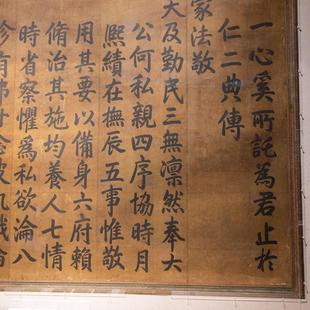 一心奚所託為君止於
仁二典傳
家法敬
天及勤民三無凛然奉大
公何私親四序協時月
熈績在撫辰五事惟敬
用其要以備身六府賴
脩治其施均養人七情
時省察懼為私欲淪八